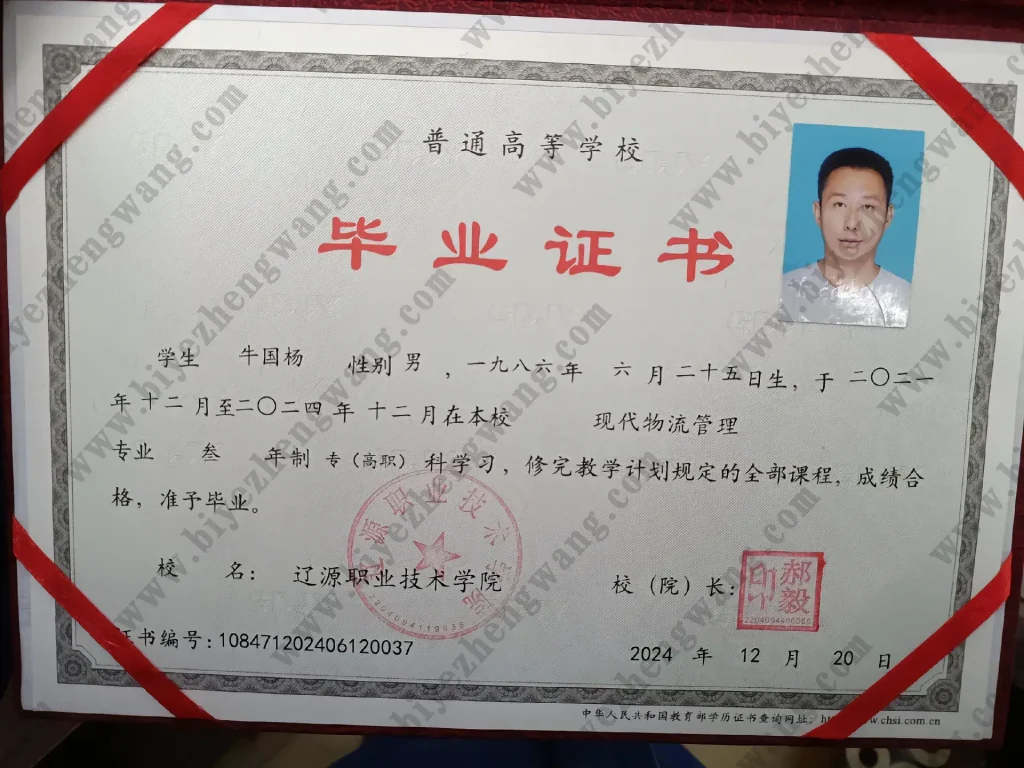 普通高等学校
毕业证书
学生 牛国杨 性别 男 ，一九八六年 六 月二十五日生，于 二〇二一
年 十二 月至二〇二四 年 十二 月在本校 现代物流管理
专业 叁 年制 专（高职） 科学习，修完教学计划规定的全部课程，成绩合
格，准予毕业。
辽源职业技术学院
2204094119838
校 名： 辽源职业技术学院 校（院）长：
郝毅印
证书编号：108471202406120037
2024 年 12 月 20 日
中华人民共和国教育部学历证书查询网址：http://www.chsi.com.cn
www.biyezhengwang.com